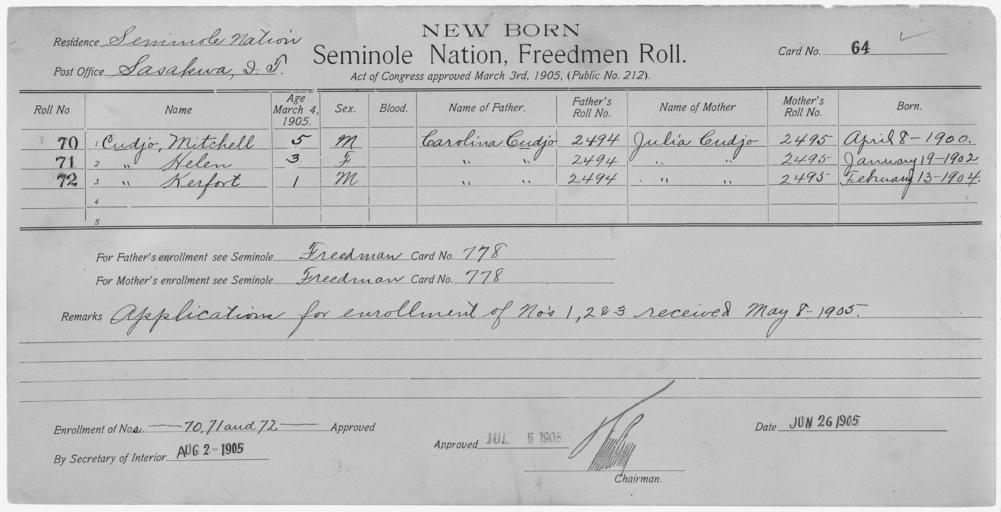 NEW BORN
Residence Seminole Nation
Seminole Nation, Freedmen Roll.
Card No. 64
Post Office Sasakwa, I. T.
Act of Congress approved March 3rd, 1905, (Public No. 212).
Roll No Name Age March 4, 1905. Sex. Blood. Name of Father. Father's Roll No. Name of Mother Mother's Roll No. Born.
70 1 Cudjo, Mitchell 5 M Carolina Cudjo 2494 Julia Cudjo 2495 April 8-1900.
71 2 " Helen 3 F " " 2494 " " 2495 January 19-1902
72 3 " Kerfort 1 M " " 2494 " " 2495 February 13-1904.
4
5
For Father's enrollment see Seminole Freedman Card No. 778
For Mother's enrollment see Seminole Freedman Card No. 778
Remarks Applications for enrollment of No's 1, 2 & 3 received May 8-1905.
Enrollment of Nos. 70, 71 and 72 Approved
By Secretary of Interior. AUG 2-1905
Approved JUL 5 1905
Chairman.
Date JUN 26 1905